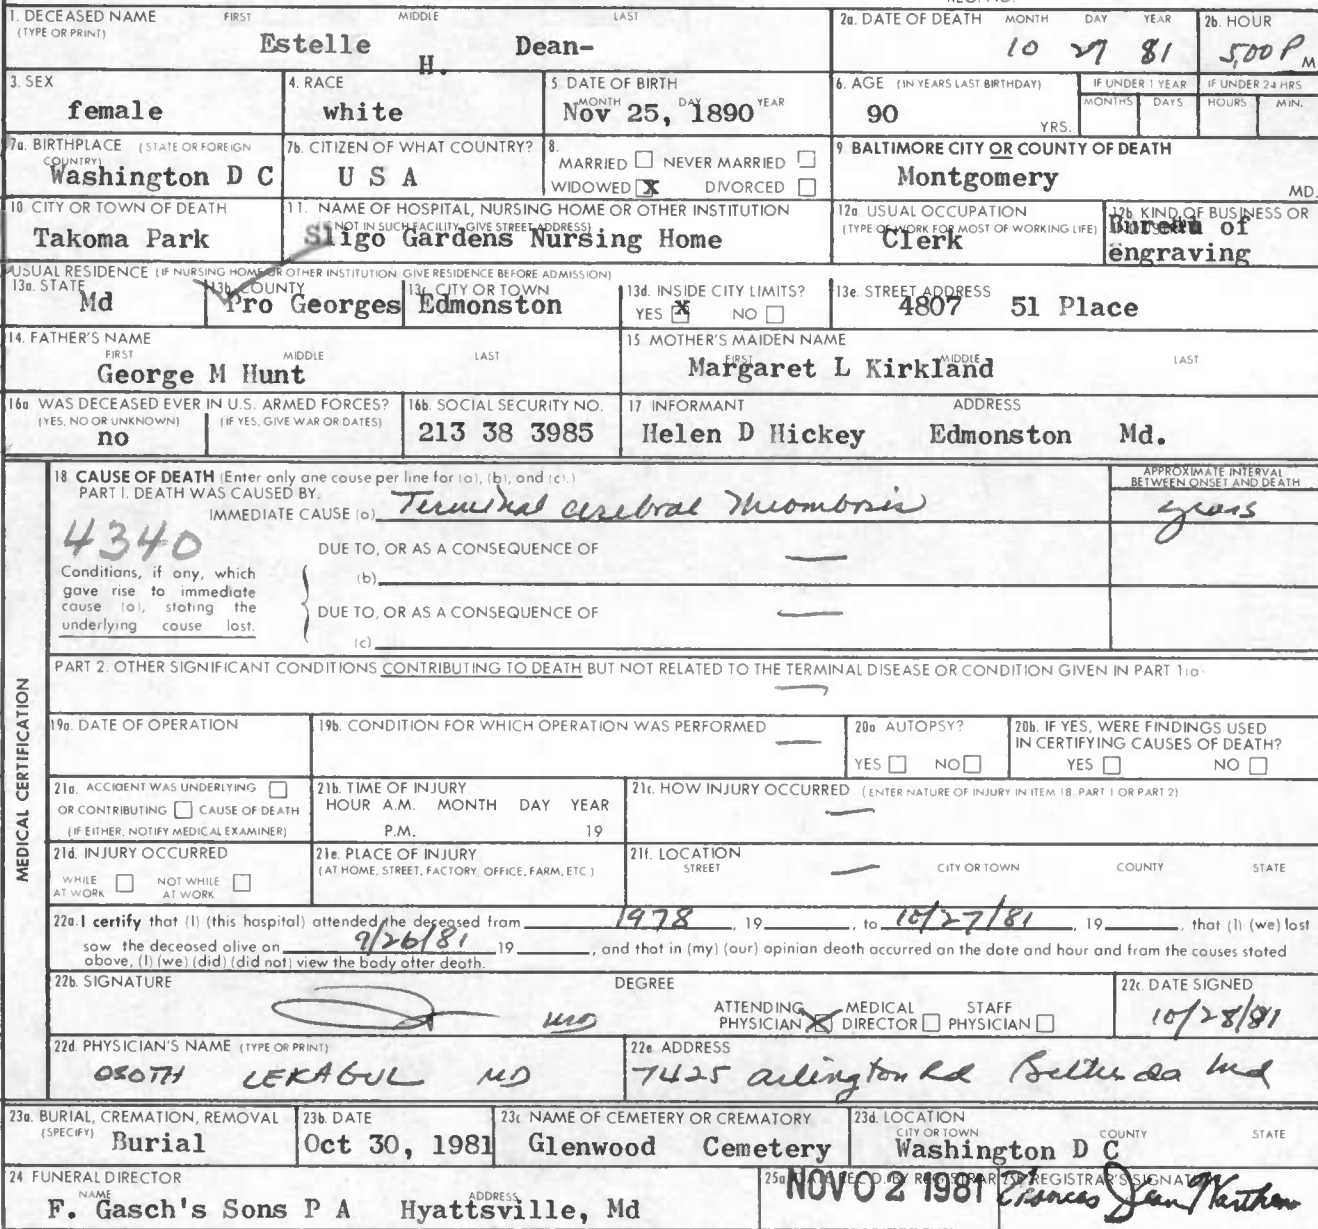 1. DECEASED NAME FIRST MIDDLE LAST
(TYPE OR PRINT)
Estelle H. Dean-
2a. DATE OF DEATH MONTH DAY YEAR
10 27 81
2b. HOUR
5,00 P M
3. SEX
female
4. RACE
white
5 DATE OF BIRTH
MONTH DAY YEAR
Nov 25, 1890
6. AGE (IN YEARS LAST BIRTHDAY)
90
YRS.
IF UNDER 1 YEAR
MONTHS DAYS
IF UNDER 24 HRS
HOURS MIN.
7a. BIRTHPLACE (STATE OR FOREIGN
COUNTRY)
Washington D C
7b. CITIZEN OF WHAT COUNTRY?
U S A
8.
MARRIED NEVER MARRIED
WIDOWED X DIVORCED
9. BALTIMORE CITY OR COUNTY OF DEATH
Montgomery
MD.
10 CITY OR TOWN OF DEATH
Takoma Park
11. NAME OF HOSPITAL, NURSING HOME OR OTHER INSTITUTION
(IF NOT IN SUCH FACILITY, GIVE STREET ADDRESS)
Sligo Gardens Nursing Home
12a USUAL OCCUPATION
(TYPE OF WORK FOR MOST OF WORKING LIFE)
Clerk
12b. KIND OF BUSINESS OR
Bureau of
engraving
USUAL RESIDENCE (IF NURSING HOME OR OTHER INSTITUTION GIVE RESIDENCE BEFORE ADMISSION)
13a. STATE
Md
13b. COUNTY
Pro Georges
13c. CITY OR TOWN
Edmonston
13d. INSIDE CITY LIMITS?
YES X NO
13e. STREET ADDRESS
4807 51 Place
14. FATHER'S NAME
FIRST MIDDLE LAST
George M Hunt
15 MOTHER'S MAIDEN NAME
FIRST MIDDLE LAST
Margaret L Kirkland
16a WAS DECEASED EVER IN U.S. ARMED FORCES?
(YES, NO OR UNKNOWN) (IF YES, GIVE WAR OR DATES)
no
16b. SOCIAL SECURITY NO.
213 38 3985
17 INFORMANT ADDRESS
Helen D Hickey Edmonston Md.
MEDICAL CERTIFICATION
18 CAUSE OF DEATH (Enter only one cause per line for (a), (b), and (c).)
PART I. DEATH WAS CAUSED BY.
IMMEDIATE CAUSE (a) Terminal cerebral thrombosis
APPROXIMATE INTERVAL
BETWEEN ONSET AND DEATH
years
4340
DUE TO, OR AS A CONSEQUENCE OF —
(b)
Conditions, if any, which
gave rise to immediate
cause (a), stating the
underlying cause last.
DUE TO, OR AS A CONSEQUENCE OF —
(c)
PART 2. OTHER SIGNIFICANT CONDITIONS CONTRIBUTING TO DEATH BUT NOT RELATED TO THE TERMINAL DISEASE OR CONDITION GIVEN IN PART 1(a)
—
19a. DATE OF OPERATION
19b. CONDITION FOR WHICH OPERATION WAS PERFORMED —
20a AUTOPSY?
YES NO
20b. IF YES, WERE FINDINGS USED
IN CERTIFYING CAUSES OF DEATH?
YES NO
21a. ACCIDENT WAS UNDERLYING
OR CONTRIBUTING CAUSE OF DEATH
(IF EITHER, NOTIFY MEDICAL EXAMINER)
21b. TIME OF INJURY
HOUR A.M. MONTH DAY YEAR
P.M. 19
21c. HOW INJURY OCCURRED (ENTER NATURE OF INJURY IN ITEM 18, PART 1 OR PART 2)
—
21d. INJURY OCCURRED
WHILE AT WORK NOT WHILE AT WORK
21e. PLACE OF INJURY
(AT HOME, STREET, FACTORY, OFFICE, FARM, ETC.)
21f. LOCATION
STREET — CITY OR TOWN COUNTY STATE
22a. I certify that (I) (this hospital) attended the deceased from 1978, 19 , to 10/27/81, 19 , that (I) (we) last
saw the deceased alive on 9/26/81 19 , and that in (my) (our) opinion death occurred on the date and hour and from the causes stated
above, (I) (we) (did) (did not) view the body after death.
22b. SIGNATURE DEGREE
MD
ATTENDING PHYSICIAN X MEDICAL DIRECTOR STAFF PHYSICIAN
22c. DATE SIGNED
10/28/81
22d. PHYSICIAN'S NAME (TYPE OR PRINT)
OSOTH LEKAGUL MD
22e. ADDRESS
7425 Arlington Rd Bethesda Md
23a. BURIAL, CREMATION, REMOVAL
(SPECIFY)
Burial
23b. DATE
Oct 30, 1981
23c. NAME OF CEMETERY OR CREMATORY
Glenwood Cemetery
23d. LOCATION
CITY OR TOWN COUNTY STATE
Washington D C
24 FUNERAL DIRECTOR
NAME ADDRESS
F. Gasch's Sons P A Hyattsville, Md
25a DATE REC'D. BY REGISTRAR
NOV 02 1981
25b REGISTRAR'S SIGNATURE
Frances Jean Warthen